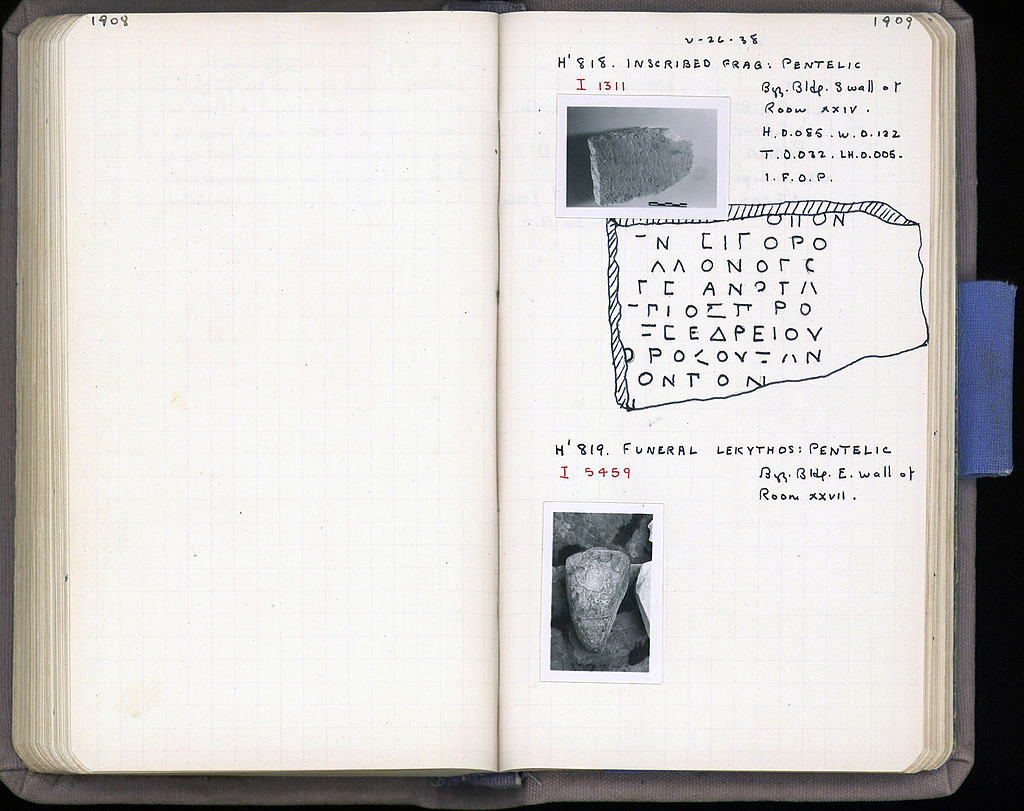 1908
1909
V-26-38
H'818. INSCRIBED FRAG: PENTELIC
I 1311
Byz. Bldg. S wall of
Room XXIV.
H. 0.085. W. 0.132
T. 0.032. LH. 0.005.
I. F. O. P.
ΟΠΟΝ
Ν ΣΙΓΟΡΟ
ΛΛΟΝΟΓΣ
ΓΙΟΣΠΡΟ
ΣΕΔΡΕΙΟΥ
ΟΝΤΟΝ
H'819. FUNERAL LEKYTHOS: PENTELIC
I 5459
Byz. Bldg. E. wall of
Room XXVII.